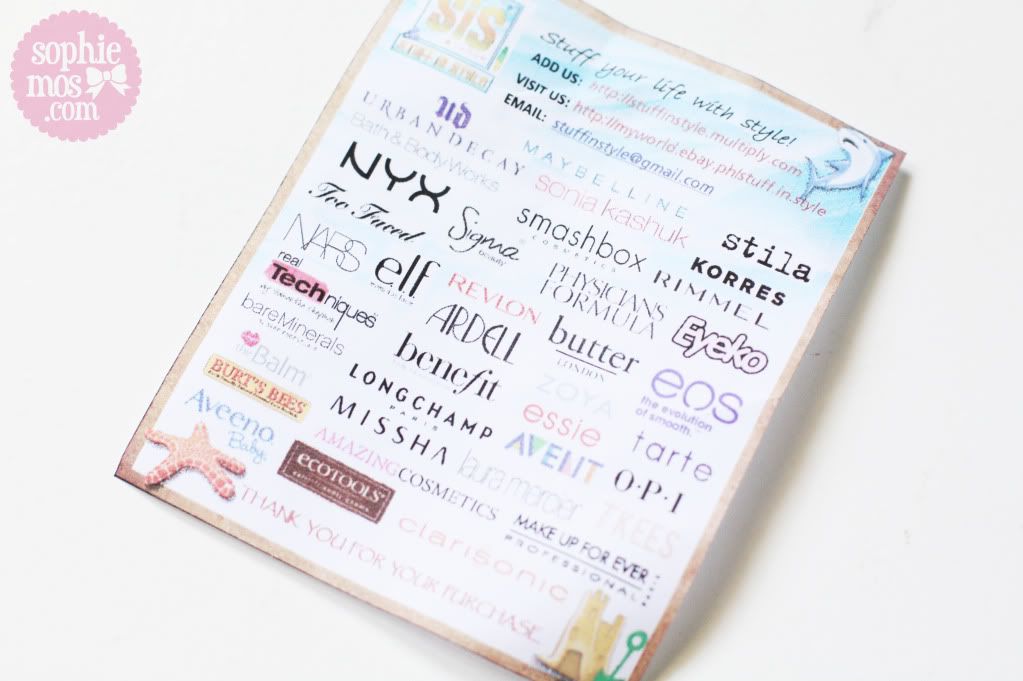 sophie
mos
.com
SIS
Stuff your life with style!
ADD US: http://stuffinstyle.multiply.com
VISIT US: http://myworld.ebay.ph/stuff.in.style
EMAIL: stuffinstyle@gmail.com
UD
URBAN DECAY
MAYBELLINE
Bath & Body Works
sonia kashuk
NYX
smashbox
COSMETICS
stila
Too Faced
Sigma
beauty
KORRES
NARS
elf
PHYSICIANS
FORMULA
RIMMEL
real
Techniques
REVLON
Eyeko
bareMinerals
ARDELL
butter
LONDON
the Balm
benefit
ZOYA
eos
the evolution
of smooth
BURT'S BEES
LONGCHAMP
PARIS
essie
tarte
Aveeno
Baby
MISSHA
AVENT
O·P·I
AMAZING COSMETICS
laura mercier
ecoTOOLS
MAKE UP FOR EVER
PROFESSIONAL
clarisonic
THANK YOU FOR YOUR PURCHASE